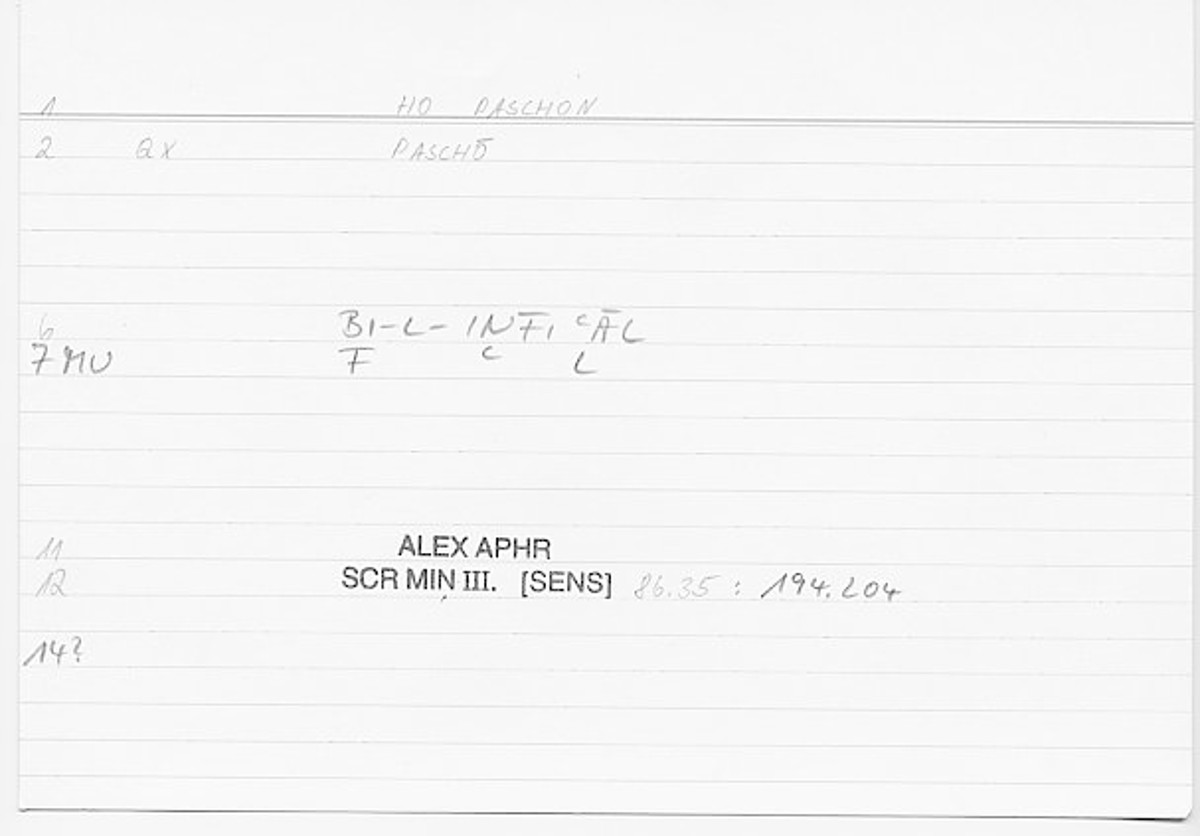 1 HO PASCHON
2 QX PASCHŌ
6 BI-L- INF̄I ᶜĀL
7 MU F C L
11 ALEX APHR
12 SCR MIN III. [SENS] 86.35 : 194.204
14?